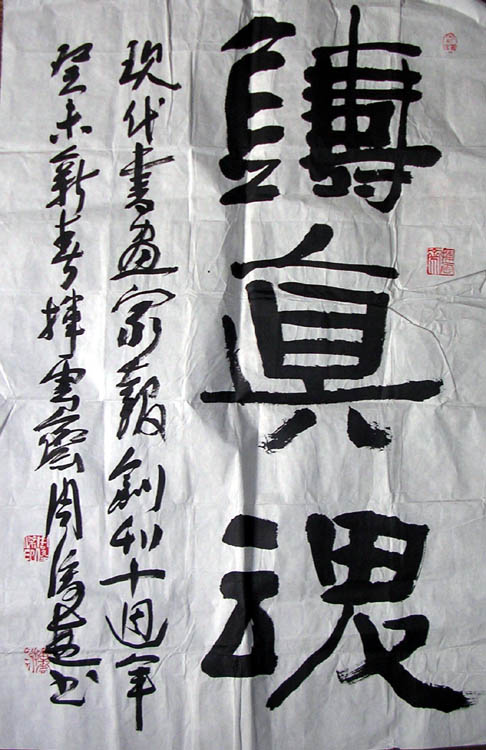 鑄真魂
現代書画家報創刊十週年
癸未新春揮雲齋周書